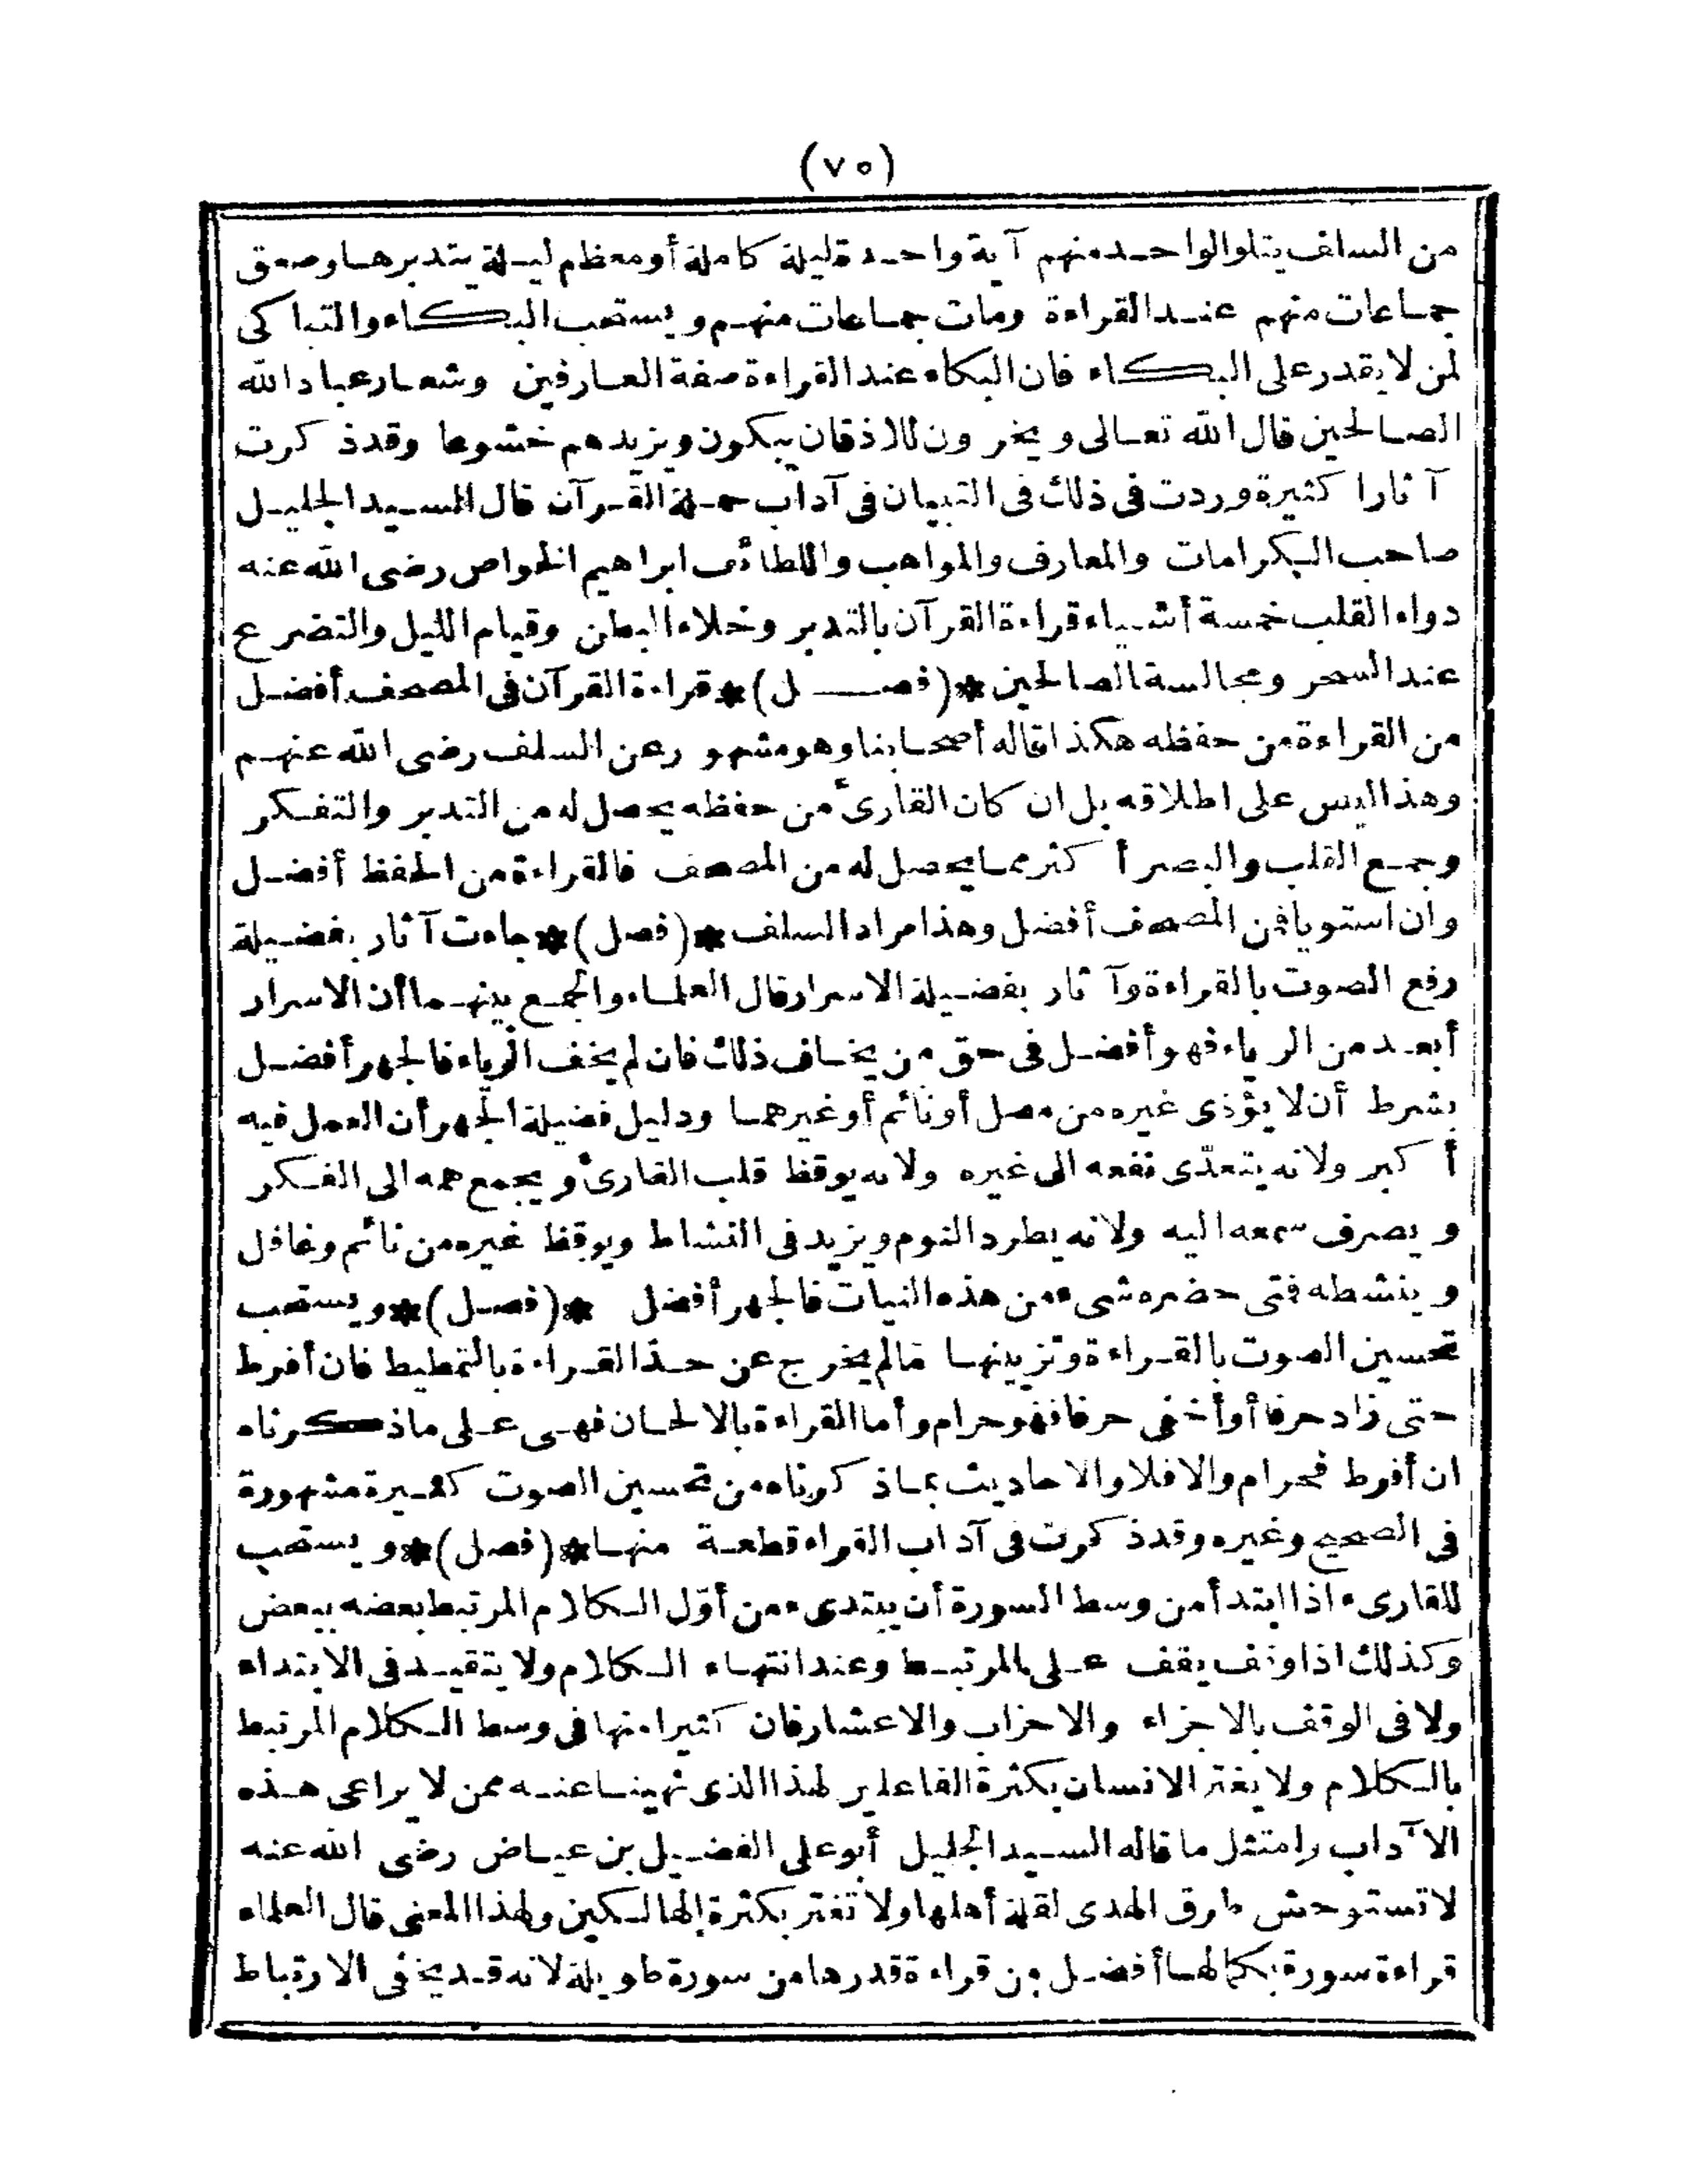 (٧٥)
من السلف يتلو الواحد منهم آية واحدة ليلة كاملة أو معظم ليلة يتدبرها وصعق
جماعات منهم عند القراءة ومات جماعات منهم و يستحب البكاء والتباكى
لمن لا يقدر على البكاء فان البكاء عند القراءة صفة العارفين وشعار عباد الله
الصالحين قال الله تعالى و يخرون للاذقان يبكون ويزيدهم خشوعا وقد ذكرت
آثارا كثيرة وردت فى ذلك فى التبيان فى آداب حملة القرآن قال السيد الجليل
صاحب الكرامات والمعارف والمواهب واللطائف ابراهيم الخواص رضى الله عنه
دواء القلب خمسة أشياء قراءة القرآن بالتدبر وخلاء البطن وقيام الليل والتضرع
عند السحر ومجالسة الصالحين *(فصـل)* قراءة القرآن فى المصحف أفضل
من القراءة من حفظه هكذا قاله أصحابنا وهو مشهور عن السلف رضى الله عنهم
وهذا ليس على اطلاقه بل ان كان القارئ من حفظه يحصل له من التدبر والتفكر
وجمع القلب والبصر أكثر مما يحصل له من المصحف فالقراءة من الحفظ أفضل
وان استويا فمن المصحف أفضل وهذا مراد السلف *(فصل)* جاءت آثار بفضيلة
رفع الصوت بالقراءة وآثار بفضيلة الاسرار قال العلماء والجمع بينهما أن الاسرار
أبعد من الرياء فهو أفضل فى حق من يخاف ذلك فان لم يخف الرياء فالجهر أفضل
بشرط أن لا يؤذى غيره من مصل أو نائم أو غيرهما ودليل فضيلة الجهر أن العمل فيه
أكبر ولانه يتعدّى نفعه الى غيره ولانه يوقظ قلب القارئ و يجمع همه الى الفكر
و يصرف سمعه اليه ولانه يطرد النوم ويزيد فى النشاط ويوقظ غيره من نائم وغافل
و ينشطه فتى حضره شىء من هذه النيات فالجهر أفضل *(فصل)* و يستحب
تحسين الصوت بالقراءة وتزيينها مالم يخرج عن حد القراءة بالتمطيط فان أفرط
حتى زاد حرفا أو أخفى حرفا فهو حرام وأما القراءة بالالحان فهى على ماذكرناه
ان أفرط فحرام والا فلا والاحاديث بماذكرناه من تحسين الصوت كثيرة مشهورة
فى الصحيح وغيره وقد ذكرت فى آداب القراء قطعة منها *(فصل)* و يستحب
للقارىء اذا ابتدأ من وسط السورة أن يبتدىء من أوّل الكلام المرتبط بعضه ببعض
وكذلك اذا وقف يقف على المرتبط وعند انتهاء الكلام ولا يتقيد فى الابتداء
ولا فى الوقف بالاجزاء والاحزاب والاعشار فان كثيرا منها فى وسط الكلام المرتبط
بالكلام ولا يغتر الانسان بكثرة الفاعلين لهذا الذى نهينا عنه ممن لا يراعى هذه
الآداب وامتثل ما قاله السيد الجليل أبو على الفضيل بن عياض رضى الله عنه
لا تستوحش طرق الهدى لقلة أهلها ولا تغتر بكثرة الهالكين ولهذا المعنى قال العلماء
قراءة سورة بكمالها أفضل من قراءة قدرها من سورة طويلة لانه قد يخفى الارتباط